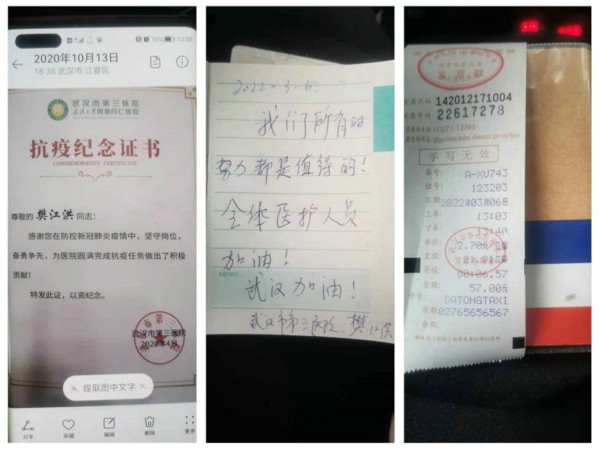 13:38
2020年10月13日
18:38 武汉市 江夏区
武汉市第三医院
武汉大学附属同仁医院
抗疫纪念证书
COMMEMORATIVE CERTIFICATE
尊敬的 樊江洪 同志：
感谢您在防控新冠肺炎疫情中，坚守岗位，
奋勇争先，为医院圆满完成抗疫任务做出了积极
贡献！
特发此证，以资纪念。
武汉市第三医院
2020年4月
提取图中文字
分享
收藏
编辑
删除
更多
2022-3-6.
我们所有的
努力都是值得的！
全体医护人员
加油！
武汉加油！
武汉市第三医院 樊江洪
发票联
142012171004
22617278
手写无效
车号 A-XU743
证号 123203
日期 2022年03月06日
上车 13:03
下车 13:40
单价 2.70元
00:06:57
金额 57.00元
卡号 DATONGTAXI
02765656567